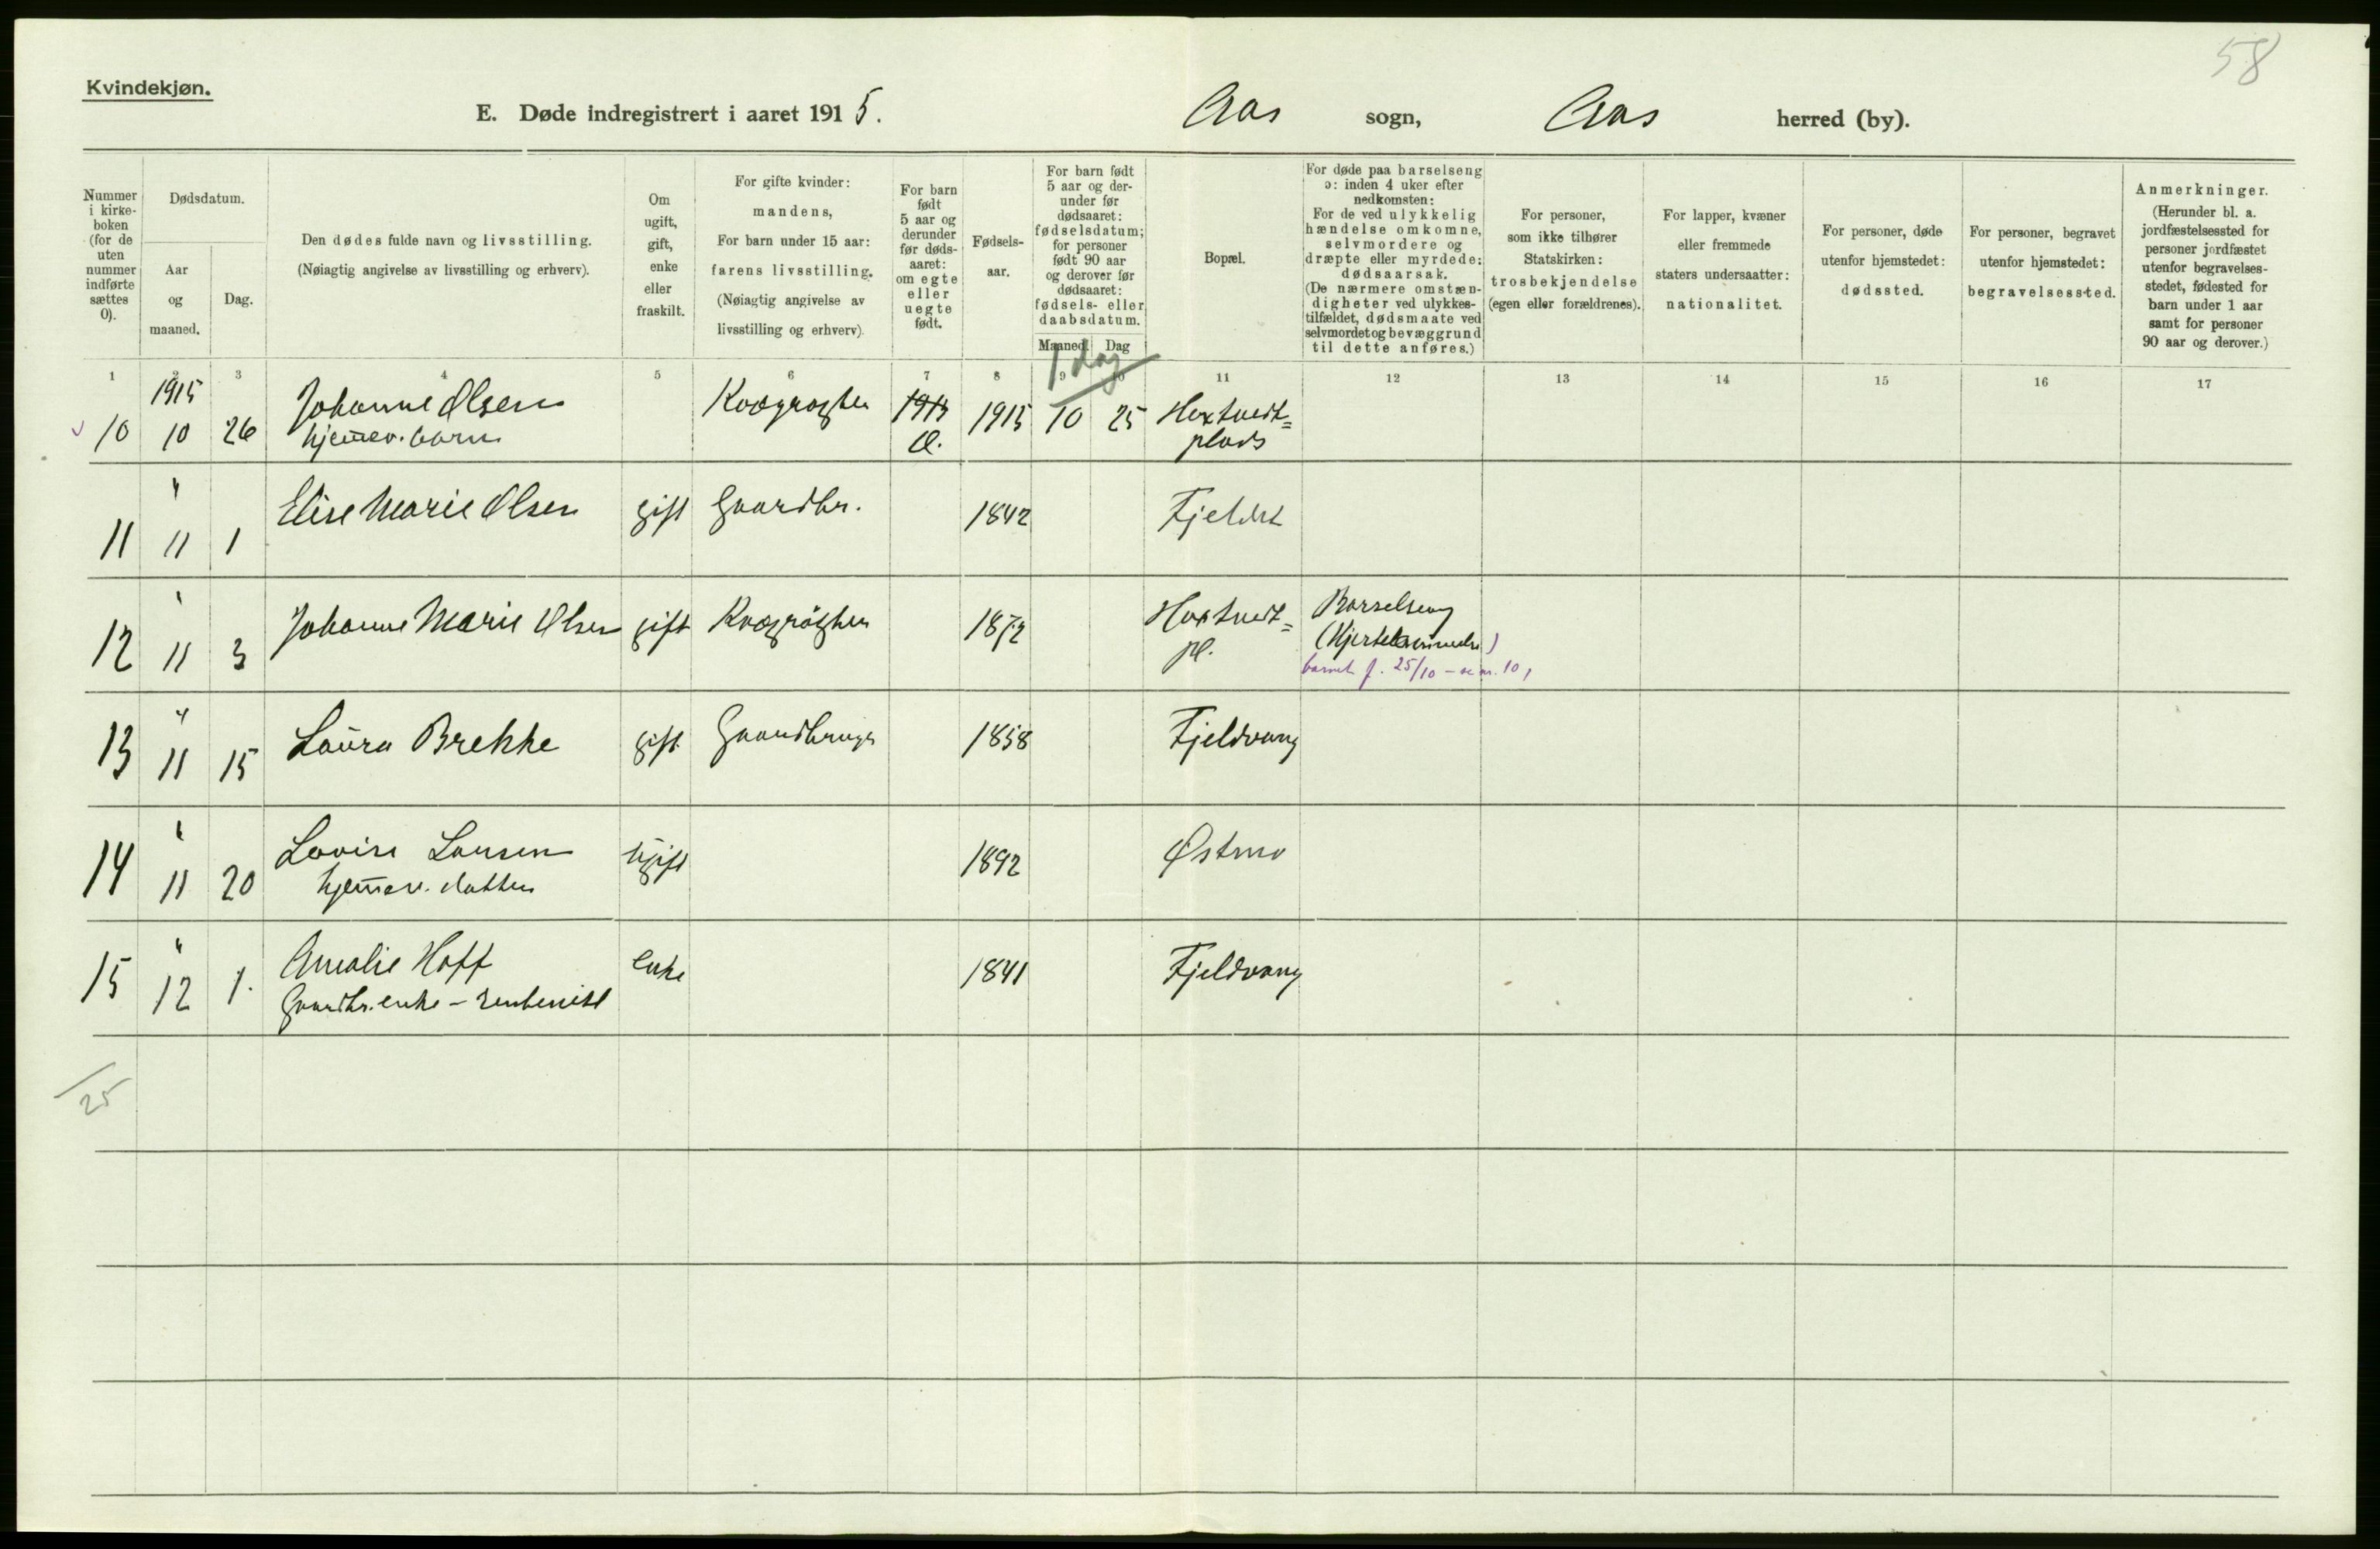 58
Kvindekjøn.
E. Døde indregistrert i aaret 1915. Aas sogn, Aas herred (by).
Nummer
i kirke-
boken
(for de
uten
nummer
indførte
sættes
0).
Dødsdatum.
Aar
og
maaned.
Dag.
Den dødes fulde navn og livsstilling.
(Nøiagtig angivelse av livsstilling og erhverv).
Om
ugift,
gift,
enke
eller
fraskilt.
For gifte kvinder:
mandens,
For barn under 15 aar:
farens livsstilling.
(Nøiagtig angivelse av
livsstilling og erhverv).
For barn
født
5 aar og
derunder
før døds-
aaret:
om egte
eller
uegte
født.
Fødsels-
aar.
For barn født
5 aar og der-
under før
dødsaaret:
fødselsdatum;
for personer
født 90 aar
og derover før
dødsaaret:
fødsels- eller
daabsdatum.
Maaned. Dag
Bopæl.
For døde paa barselseng
ɔ: inden 4 uker efter
nedkomsten:
For de ved ulykkelig
hændelse omkomne,
selvmordere og
dræpte eller myrdede:
dødsaarsak.
(De nærmere omstæn-
digheter ved ulykkes-
tilfældet, dødsmaate ved
selvmordet og bevæggrund
til dette anføres.)
For personer,
som ikke tilhører
Statskirken:
trosbekjendelse
(egen eller forældrenes).
For lapper, kvæner
eller fremmede
staters undersaatter:
nationalitet.
For personer, døde
utenfor hjemstedet:
dødssted.
For personer, begravet
utenfor hjemstedet:
begravelsessted.
Anmerkninger.
(Herunder bl. a.
jordfæstelsessted for
personer jordfæstet
utenfor begravelses-
stedet, fødested for
barn under 1 aar
samt for personer
90 aar og derover.)
1 2 3 4 5 6 7 8 9 10 11 12 13 14 15 16 17
1 dag
1915
10 10 26 Johanne Olsen 1915 1915 10 25
hjemmev. barn
plads
"
11 11 1 Elise Marie Olsen gift Gaardbr. 1842
"
12 11 3 Johanne Marie Olsen gift 1872
pl.
Barselseng
barnet f. 25/10 - se nr. 10,
"
13 11 15 Laura Brekke gift Gaardbruger 1858 Fjeldvang
"
14 11 20 Lovise Larsen ugift 1892 Østmo
hjemmev. datter
"
15 12 1. Amalie Hoff enke 1841 Fjeldvang
Gaardbr. enke - rentenist
25